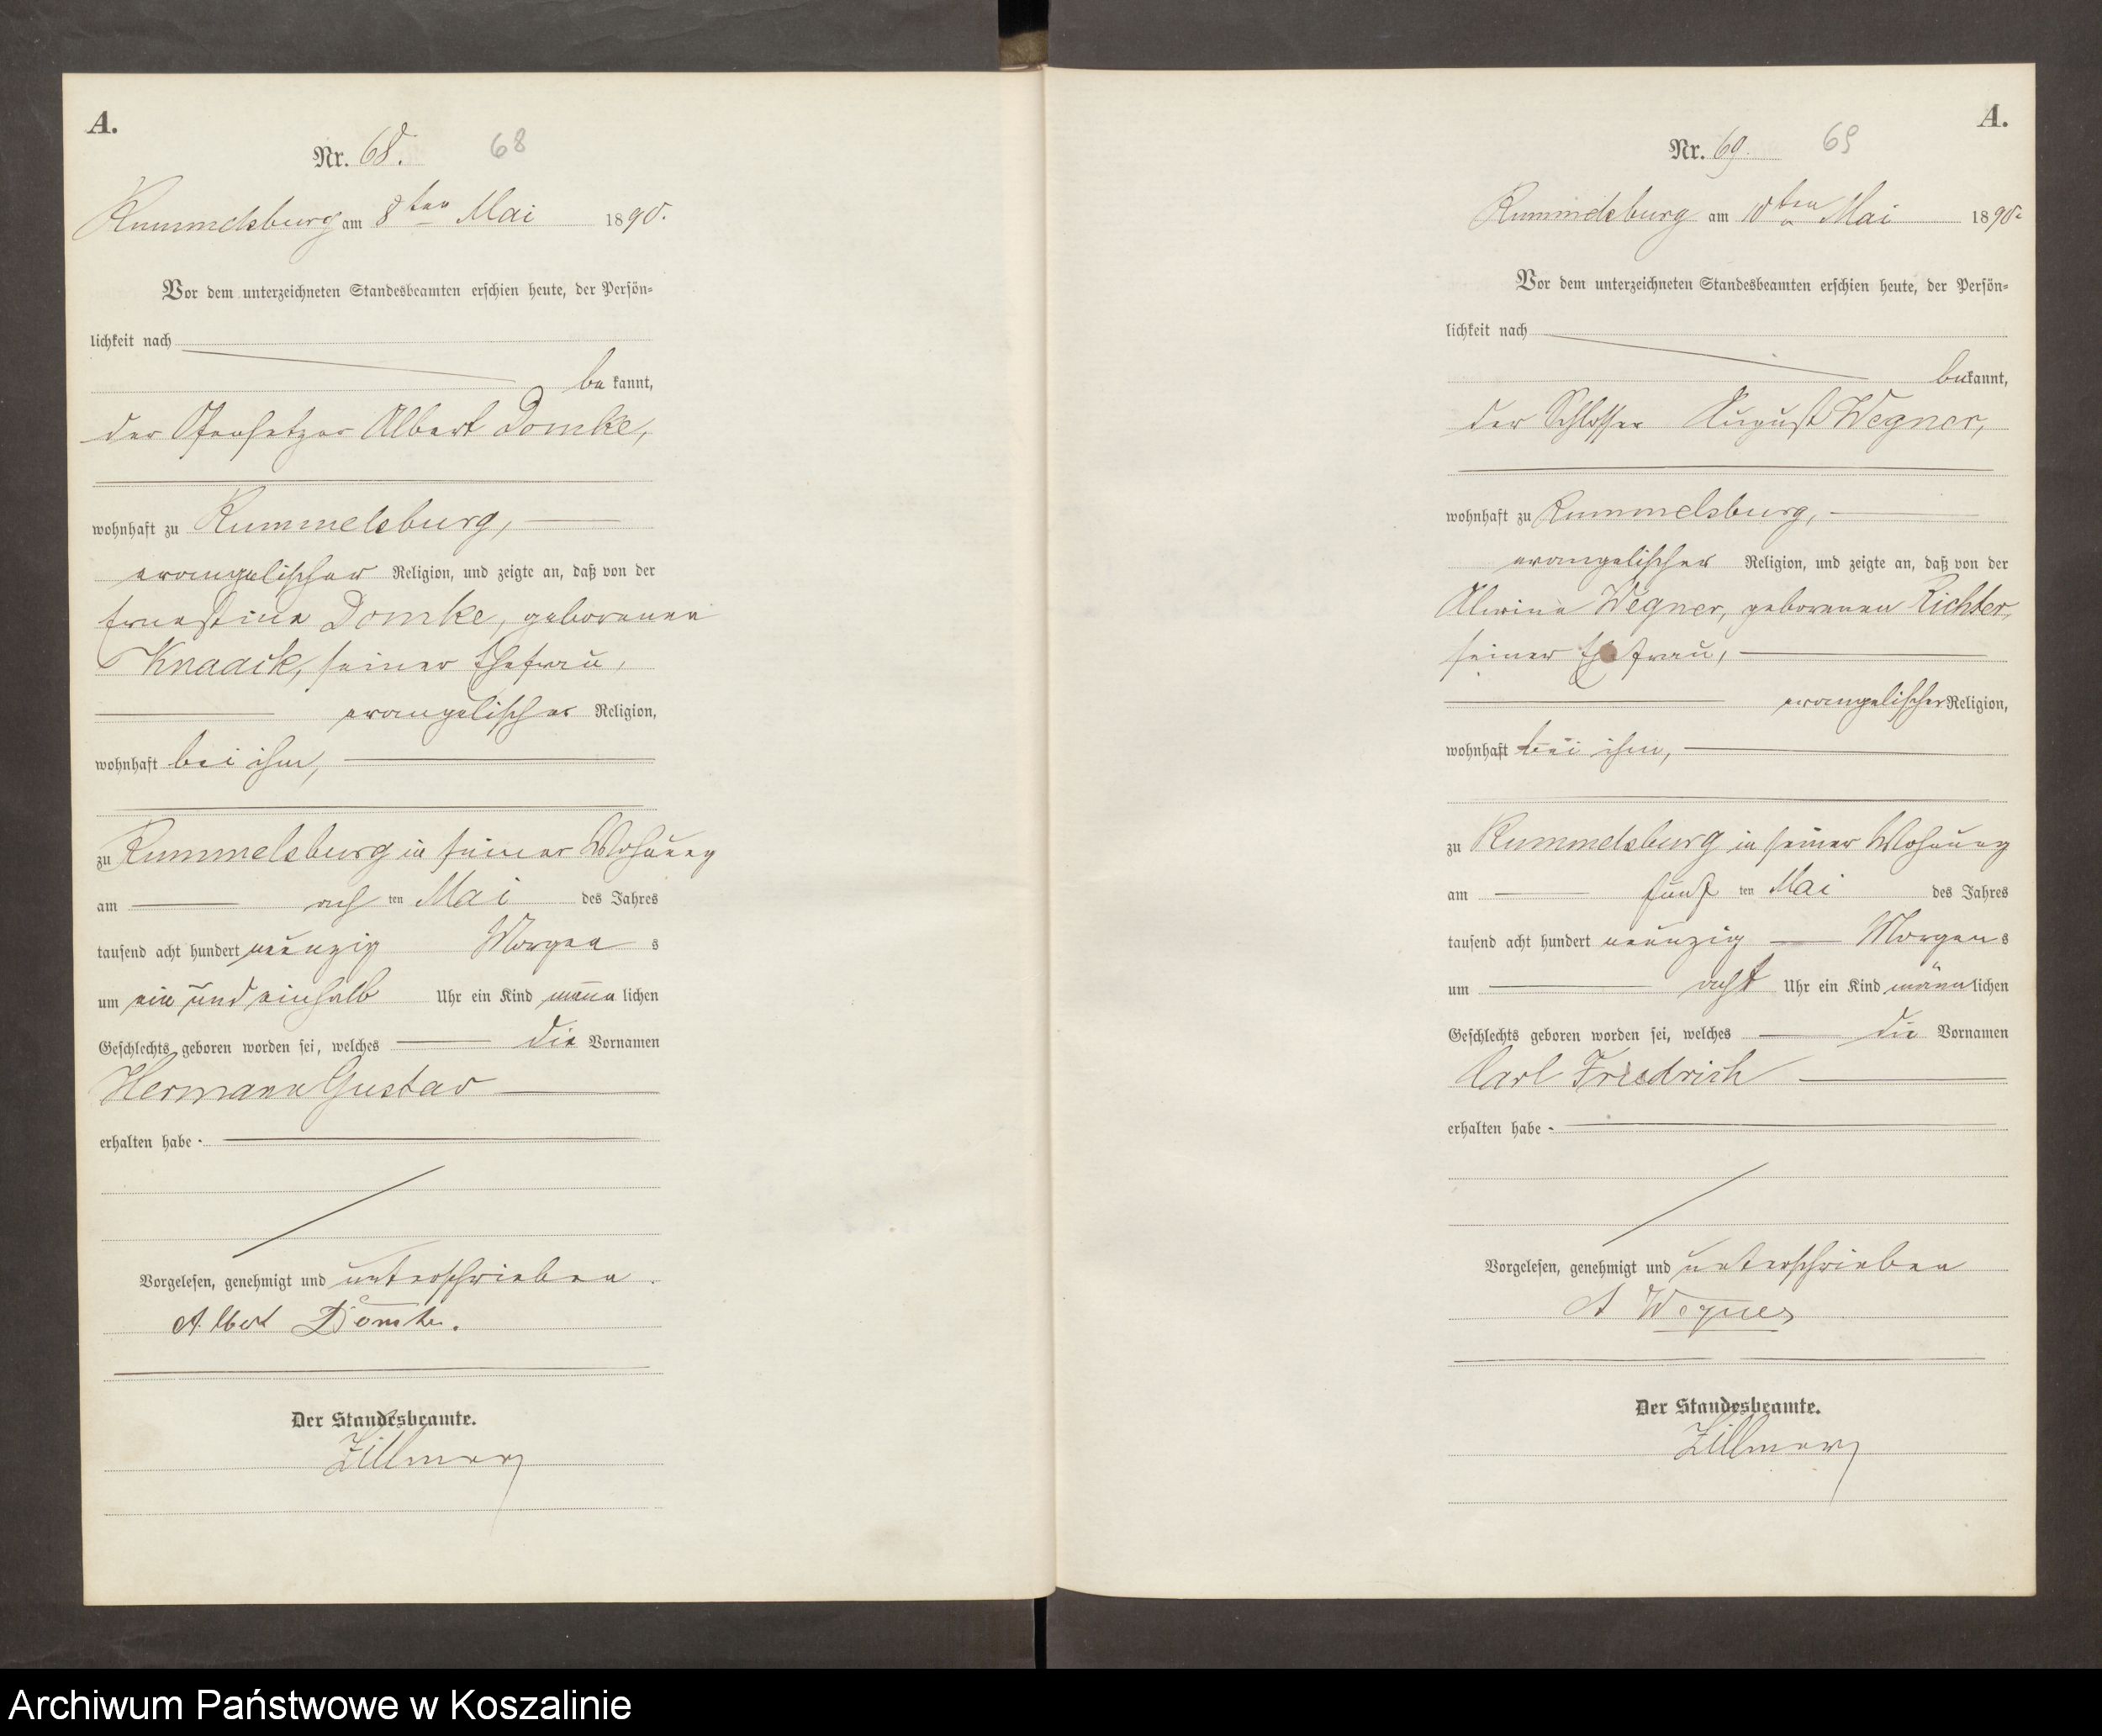 A.
Nr. 68. 68
Rummelsburg am 8ten Mai 1890.
Vor dem unterzeichneten Standesbeamten erschien heute, der Persön-
lichkeit nach
be kannt,
der Ofensetzer Albert Domke,
wohnhaft zu Rummelsburg,
evangelischer Religion, und zeigte an, daß von der
Ernestine Domke, geborenen
Knaack, seiner Ehefrau,
evangelischer Religion,
wohnhaft bei ihm,
zu Rummelsburg in seiner Wohnung
am ach ten Mai des Jahres
tausend acht hundert neunzig Morgen s
um ein und einhalb Uhr ein Kind männ lichen
Geschlechts geboren worden sei, welches die Vornamen
Hermann Gustav
erhalten habe.
Vorgelesen, genehmigt und unterschrieben.
Albert Domke.
Der Standesbeamte.
Zillmer
A.
Nr. 69. 69
Rummelsburg am 10ten Mai 1890.
Vor dem unterzeichneten Standesbeamten erschien heute, der Persön-
lichkeit nach
bekannt,
der Schlosser August Wegner,
wohnhaft zu Rummelsburg,
evangelischer Religion, und zeigte an, daß von der
Alwine Wegner, geborenen Richter,
seiner Ehefrau,
evangelischer Religion,
wohnhaft bei ihm,
zu Rummelsburg in seiner Wohnung
am fünf ten Mai des Jahres
tausend acht hundert neunzig Morgens
um acht Uhr ein Kind männlichen
Geschlechts geboren worden sei, welches die Vornamen
Carl Friedrich
erhalten habe.
Vorgelesen, genehmigt und unterschrieben
A Wegner
Der Standesbeamte.
Zillmer
Archiwum Państwowe w Koszalinie